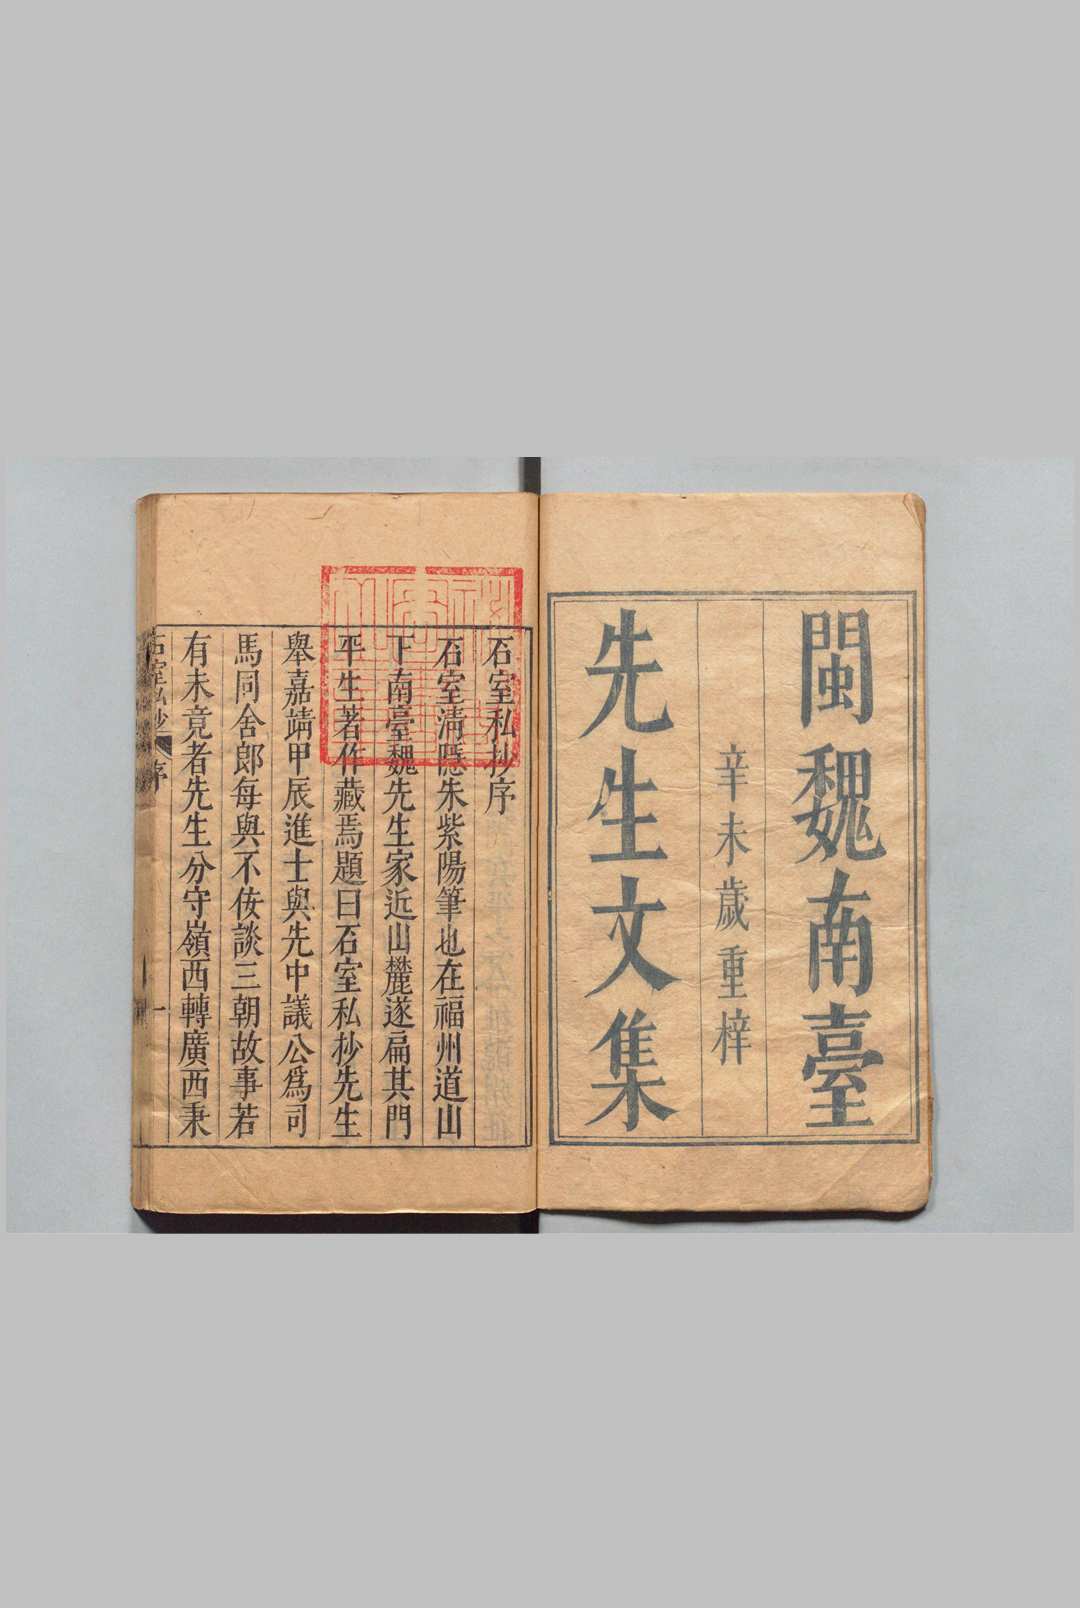 閩魏南臺
辛未歲重梓
先生文集
石室私抄序
石室清隱朱紫陽筆也在福州道山
下南臺魏先生家近山麓遂扁其門
平生著作藏焉題曰石室私抄先生
舉嘉靖甲辰進士與先中議公爲司
馬同舍郎每與不侫談三朝故事若
有未竟者先生分守嶺西轉廣西秉
石室私抄 序 一